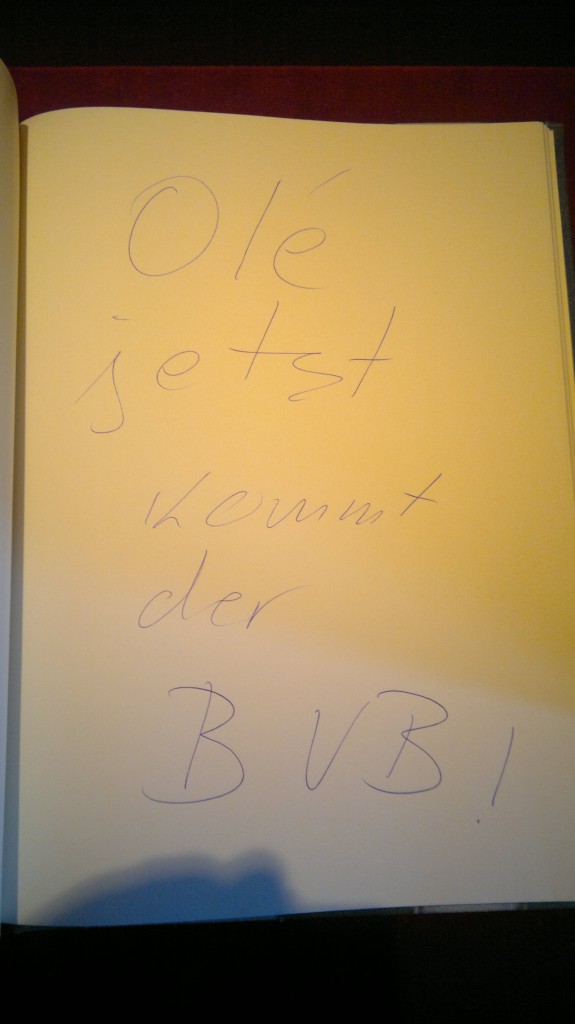 Olé
jetst
kommt
der
BVB!